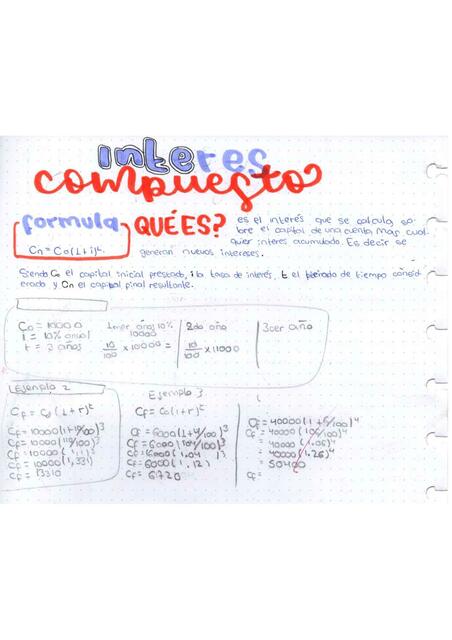 interes
compuesto
formula
Cn = Co(1+i)ᵗ.
QUÉ ES?
es el interés que se calcula so-
bre el capital de una cuenta mas cual-
quier interes acumulado. Es decir se
generan nuevos intereses.
Siendo Co el capital inicial prestado, i la tasa de interés, t el periodo de tiempo consid
erado y Cn el capital final resultante.
Co = 10000
i = 10% anual
t = 3 años
1mer años 10%
10000
10/100 x 10000 =
2do año
10/100 x 11000
3cer año
Ejemplo 2
Cf = Co(1+r)ᵗ
Cf = 10000(1+10/100)³
Cf = 10000(110/100)³
Cf = 10000(1,1)³
Cf = 10000(1,331)
Cf = 13310
Ejemplo 3
Cf = Co(1+r)ᵗ
Cf = 6000(1+4/100)³
Cf = 6000(104/100)³
Cf = 6000(1.04)³
Cf = 6000(1.12)
Cf = 6720
Cf = 40000(1+6/100)⁴
Cf = 40000(106/100)⁴
= 40000(1.06)⁴
= 40000(1.26)⁴
= 50400
Cf =